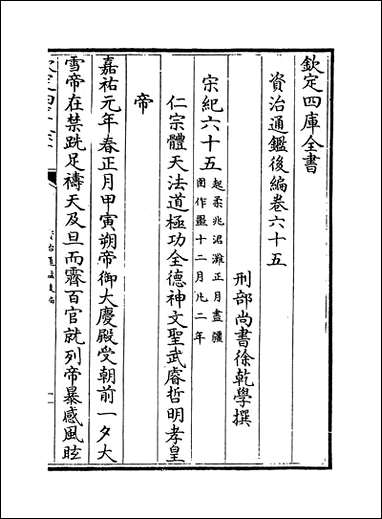 欽定四庫全書
資治通鑑後編卷六十五
刑部尚書徐乾學撰
宋紀六十五
起柔兆涒灘正月盡彊
圉作噩十二月凡二年
仁宗體天法道極功全德神文聖武睿哲明孝皇
帝
嘉祐元年春正月甲寅朔帝御大慶殿受朝前一夕大
雪帝在禁跣足禱天及旦而霽百官就列帝暴感風眩